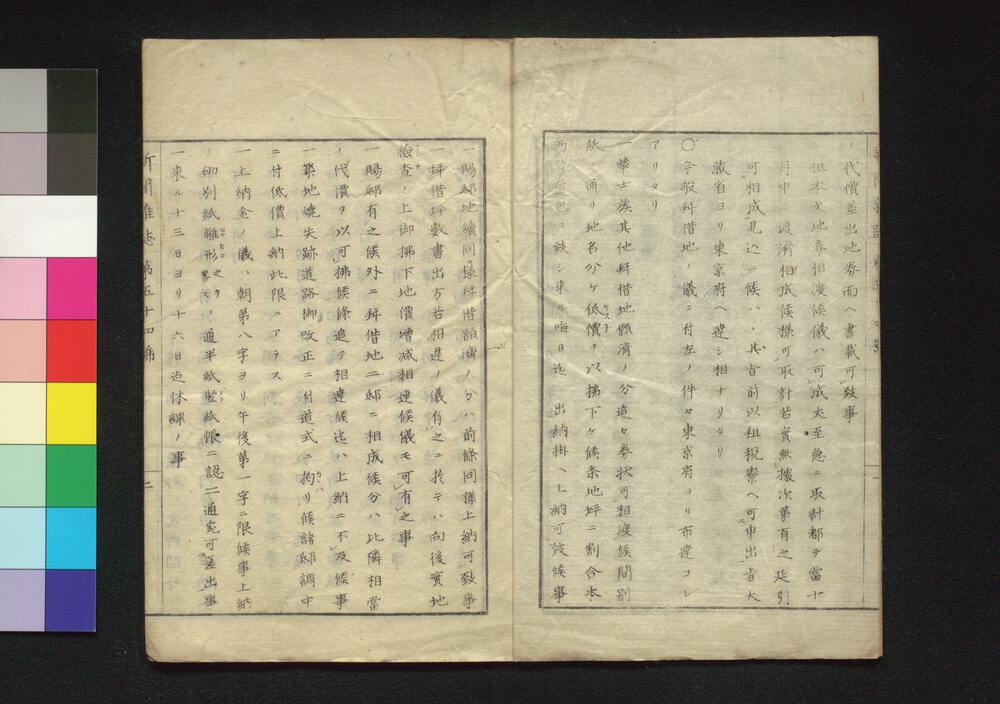 ノ代價差出地券面ヘ書載可致事
但本文地券相渡候儀ハ可成丈至急ニ取計都テ當十
月中ニ渡濟相成候様可取計若實無據次第有之延引
可相成見込ニ候ハヽ其旨前以租税寮ヘ可申出旨大
藏省ヨリ東京府ヘ達シ相ナリタリ
〇今般拜借地ノ儀ニ付左ノ件々東京府ヨリ布達コレ
アリタリ
一華士族其他拜借地願濟ノ分追々券状可相渡候間別
紙ノ通リ地名分ケ低價ヲ以拂下ケ候条地坪ニ割合本
ニ致シ来ル晦日迄ニ出納掛ヘ上納可致候事
一賜邸地續同様拜借願濟ノ分ハ前條同様上納可致事
一拜借坪數書出方若相違ノ儀有之ニ於テハ向後實地
檢査ノ上御拂下地價増減相達候儀モ可有之事
一賜邸有之候外ニ拜借地二邸ニ相成候分ハ比隣相當
ノ代價ヲ以可拂候條追テ相達候迄ハ上納ニ不及候事
一築地焼失跡道路御改正ニ付道式ニ拘リ候諸邸調中
ニ付低價上納此限ニアラス
一上納金ノ儀ハ朝第八字ヨリ午後第一字ニ限候事上納
ノ砌別紙雛形之ヲ畧スノ通半紙竪紙帳ニ認二通宛可差出事
一来ル十三日ヨリ十六日迄休課ノ事
新聞雑誌第五十四号
二